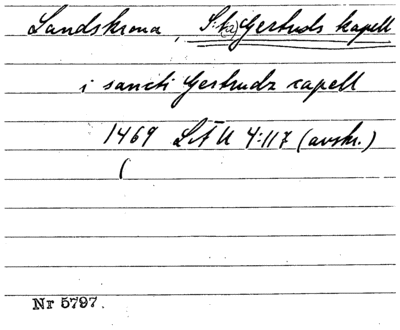 Landskrona, S:t(a) Gertruds kapell
i sancti Gertrudz capell
1469 LÄU 4:117 (avskr.)
(
Nr 5797.